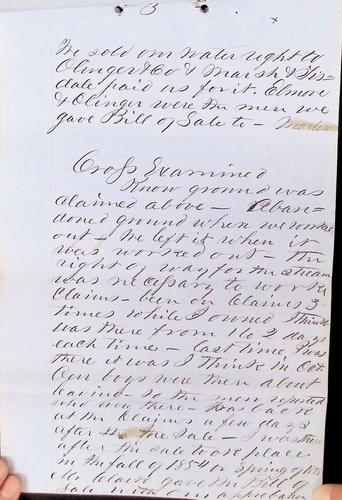 3
We sold our water right to
Olinger & Co & Marsh & Tis-
dale paid us for it. Elmore
& Olinger were the men we
gave Bill of Sale to —
Cross Examined
Know ground was
claimed above — Aban-
doned ground when we worked
out — We left it when it
was worked out — the
right of way for the stream
was necessary to work the
Claims — been on Claims 3
times while I owned I think
was there from 1 to 2 days
each times — last time I was
there it was I think in Oct
Our boys were then about
leaving — so the men
who are there — was back
at the Claims a few days
after the Sale — I was there
after the sale took place
in the fall of 1854 or Spring of 1855
Mr Clark gave the Bill of
Sale